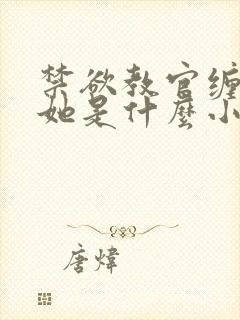 禁欲教官缠
她是什麼小
唐煒